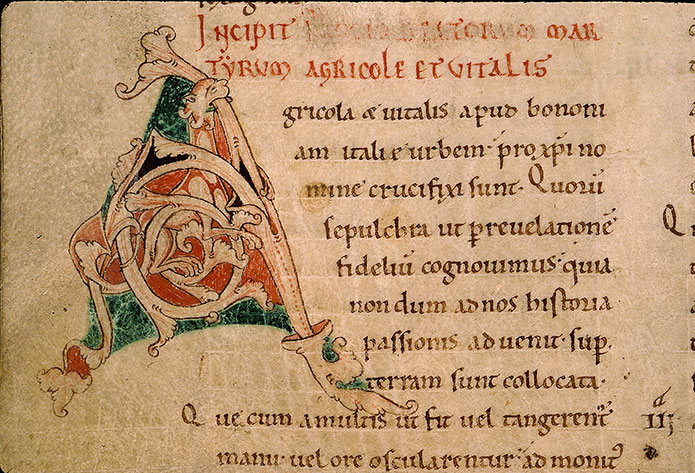 Incipit passio beatorum mar
tyrum agricole et vitalis
Agricola & vitalis apud bononi
am italiȩ urbem· pro xp̄i no
mine crucifixi sunt· Quorū
sepulchra ut p̄ revelationē
fideliū cognovimus· quia
non dum ad nos historia
passionis ad venit· sup̄
terram sunt collocata·
Que cum a multis ut fit vel tangerent̄
manu· vel ore oscularentur· ad monit᾽
Q
IIĪ